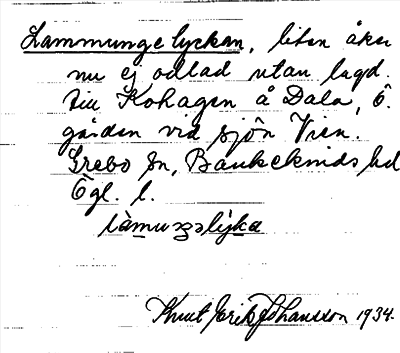 Lammungelyckan, liten åker
nu ej odlad utan lagd.
till Kohagen å Dala, Ö.
gården vid sjön Vien.
Grebo sn, Bankekinds hd
Ögl. l.
làmuŋəlỳka
Knut Erik Johansson 1934.